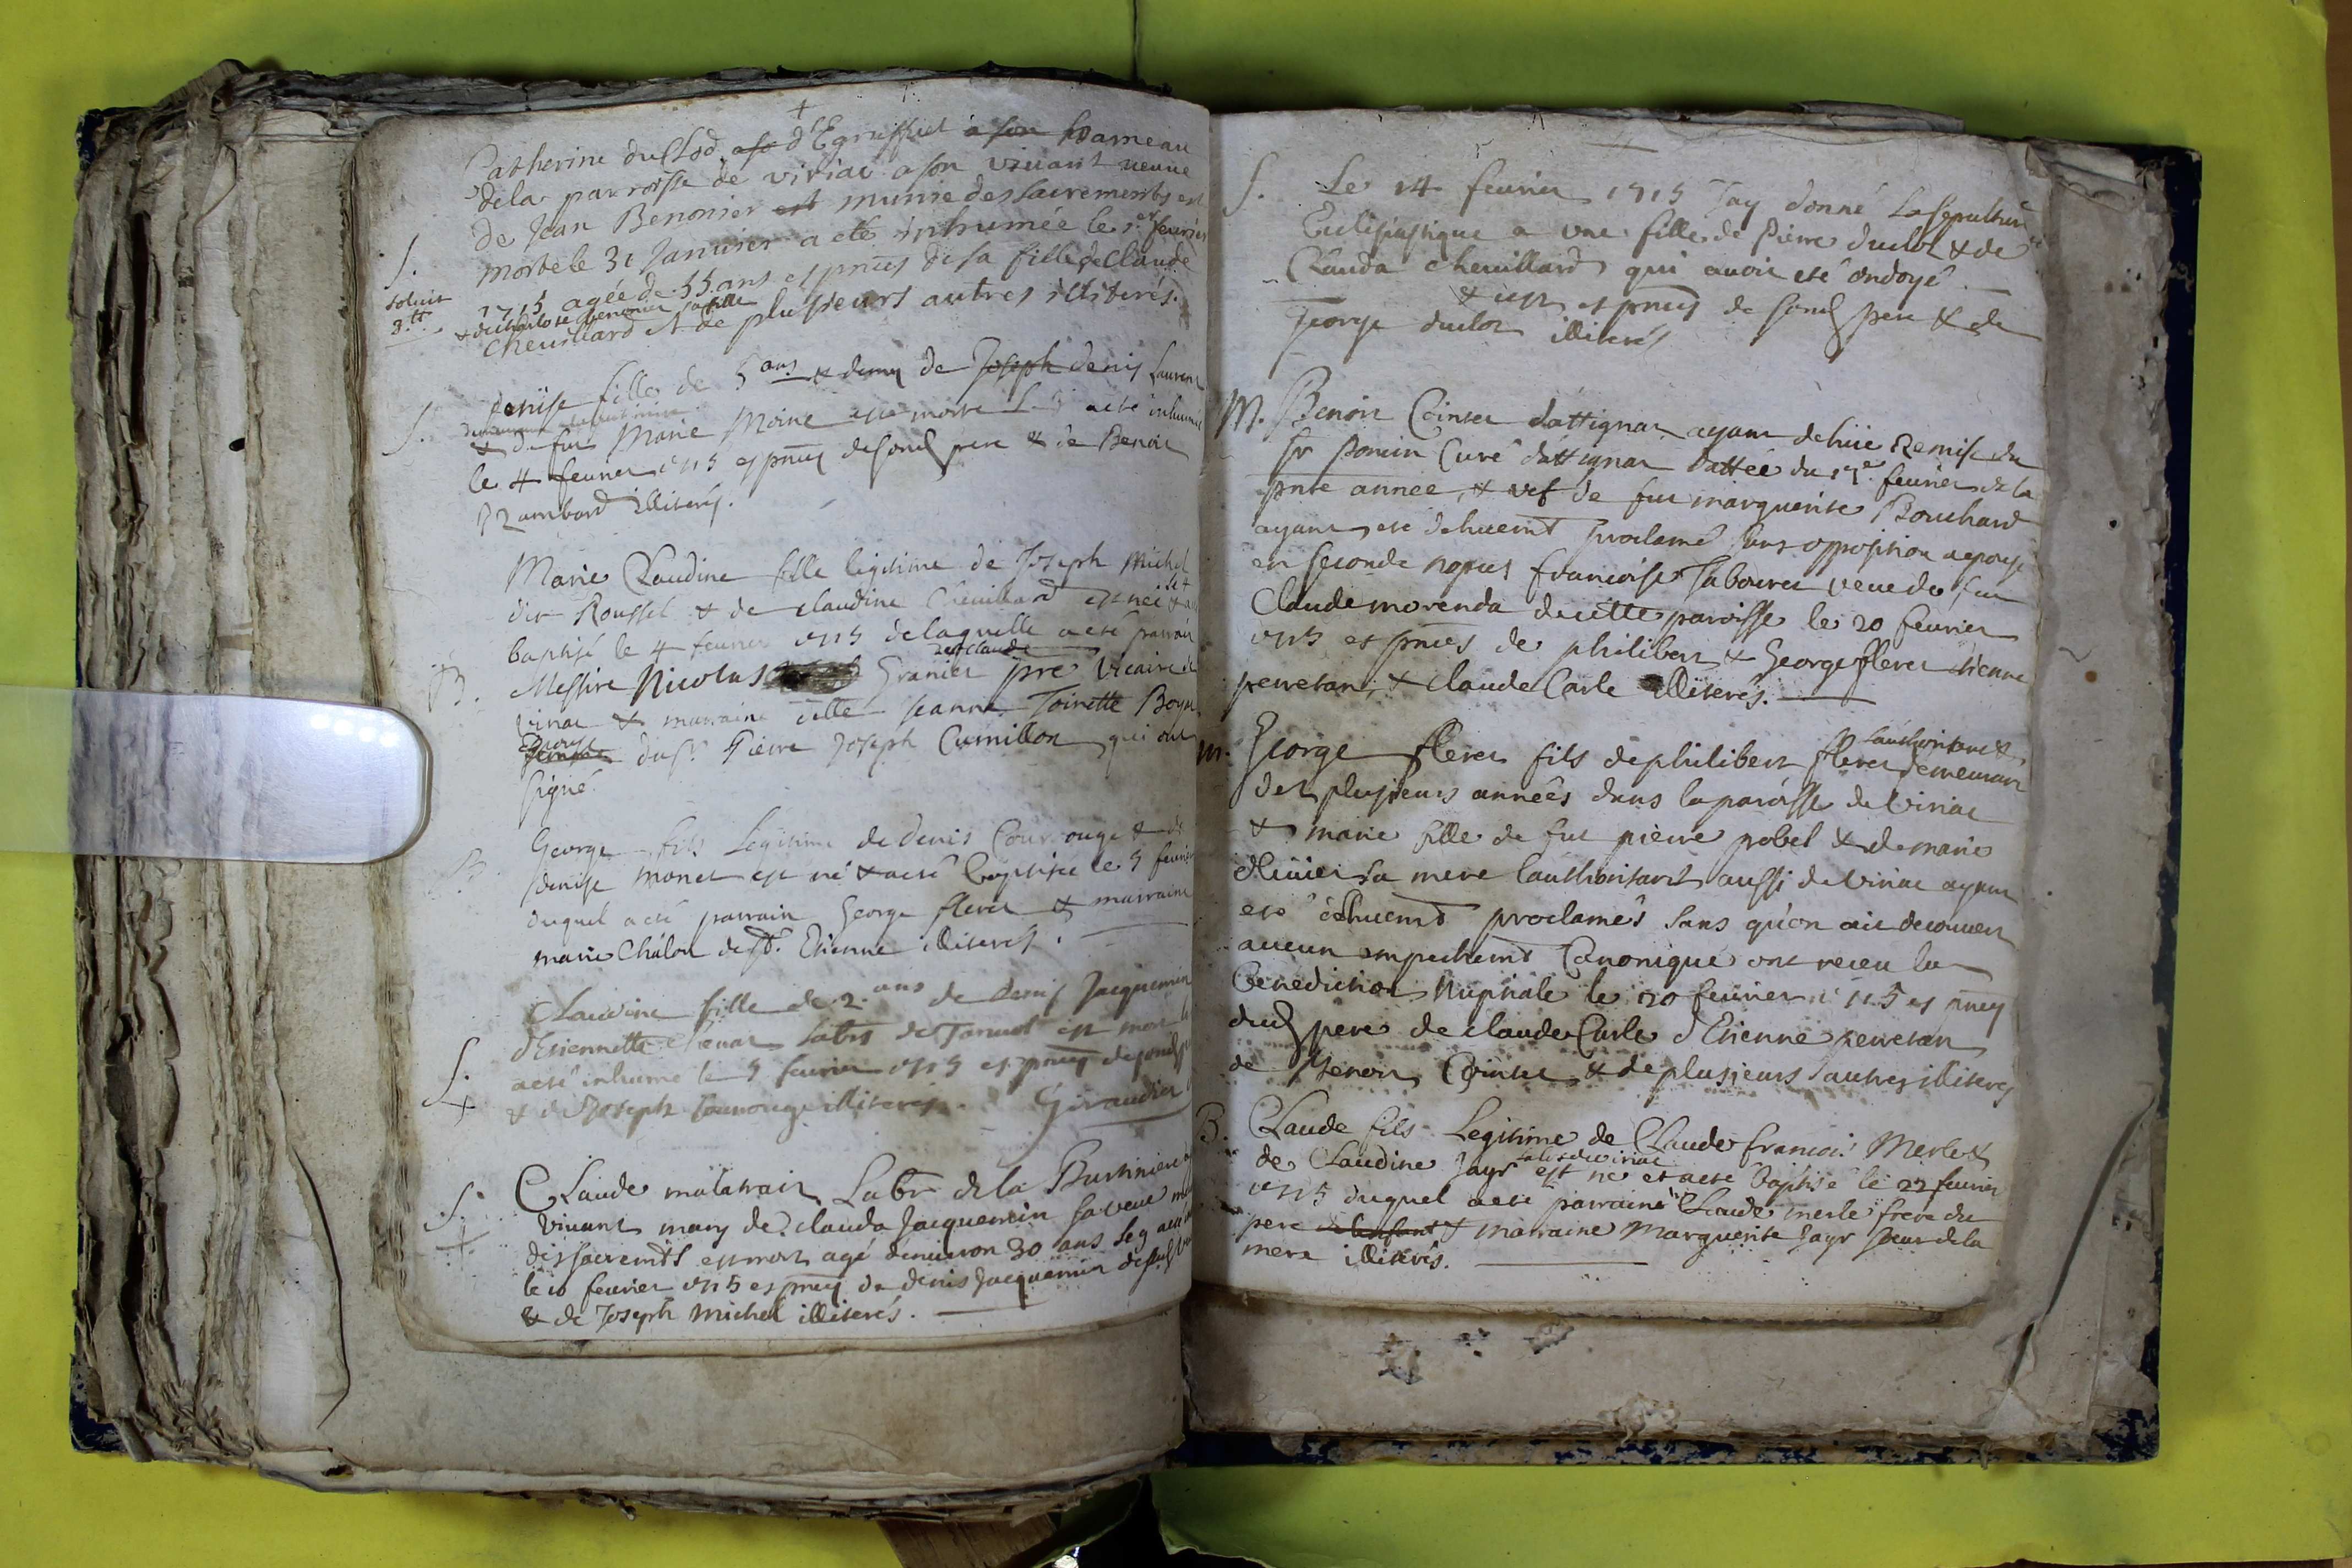 Catherine du Clod d'Egrieffiet hameau
dela parroisse de viriac a son vivant veuve
de Jean Benonier munie des sacrements est
S. morte le 31 Janvier a eté inhumée le 1.er fevrier
soluit 1715 agée de 55 ans es pnces de sa fille, de Claude
3.tt & de benonier sa fille
Chevillard et de plusieurs autres illiterés.
S. denise fille de 5 ans & demy de Joseph denis Laurent
& de fue Marie Moine est morte a eté inhumé
le 4 fevrier 1715 es pnces de sond pere & de Benoit
Rambard illiterés.
Marie Claudine fille legitime de Joseph Michel
dit Roussel & de claudine Chevillard est née &
baptisé le 4 fevrier 1715 de laquelle a eté parrain
B. Messire Nicolas Granier pre Vicaire de
viriac & marraine delle Jeanne Toinette
Epouse du sr. Pierre Joseph Cumillon qui ont
signé.
B. George fils Legitime de denis Courrouge & de
denise monet est né & a eté baptisée le 5 fevrier
duquel a eté parrain George fleret & marraine
marie Châlon de st. Etienne illiterés.
Claudine fille de 2. ans de denis Jacquemin
d'Etiennette labrs est mort
S. a eté inhumé le 5 fevrier 1715 es pnces de sond
& de Joseph Courrouge illiterés. Giraudier
S. Claude malatrait Labr. dela
vivant mary de claude Jacquemin sa veuve
des sacremts est mort agé d'environ 30 ans
le 10 fevrier 1715 es pnces de denis Jacquemin
& de Joseph Michel illiterés.
S. Le 14 fevrier 1715 Jay donné La sepulture
Eclesiastique a une fille de Pierre duclot & de
Clauda chevillard qui avoit eté ondoyé
& es pnces de sond pere & de
George duclot illiterés
M. Benoit Cointet d'attignat ayant dehüe Remise du
sr Curé d'attignat dattée du fevrier de la
pnte année, & vef de fue marguerite Bouchard
ayant eté dehuemt proclamé sans opposition a epousé
en seconde nopces francoise Tabouret veuve de fu
Claude morenda de cette paroisse le 20 fevrier
1715 es pnces de philibert & George fleret etienne
perretan, & claude Carle illiterés.
m. George fleret fils de philibert fleret l'authorisant & demeurant
dez plusieurs années dans la paroisse de Viriac
& marie fille de fut pierre pobel & de marie
olivier sa mere l'authorisant aussi de Viriac ayant
eté dehuemt proclamés sans qu'on ait decouvert
aucun empechemt Canonique ont receu la
Benediction Nuptiale le 20 fevrier 1715 es pnces
dud pere de claude Carle d'Etienne perretan
de Benoit Cointet & de plusieurs autres illiterés
B. Claude fils Legitime de Claude francois Merle &
de Claudine Jayr labrs de viriac est né et a eté baptisé le 22 fevrier
1715 duquel a eté parraine Claude merle frere du
pere de l'enfant & marraine Marguerite Jayr soeur de la
mere illiterés.